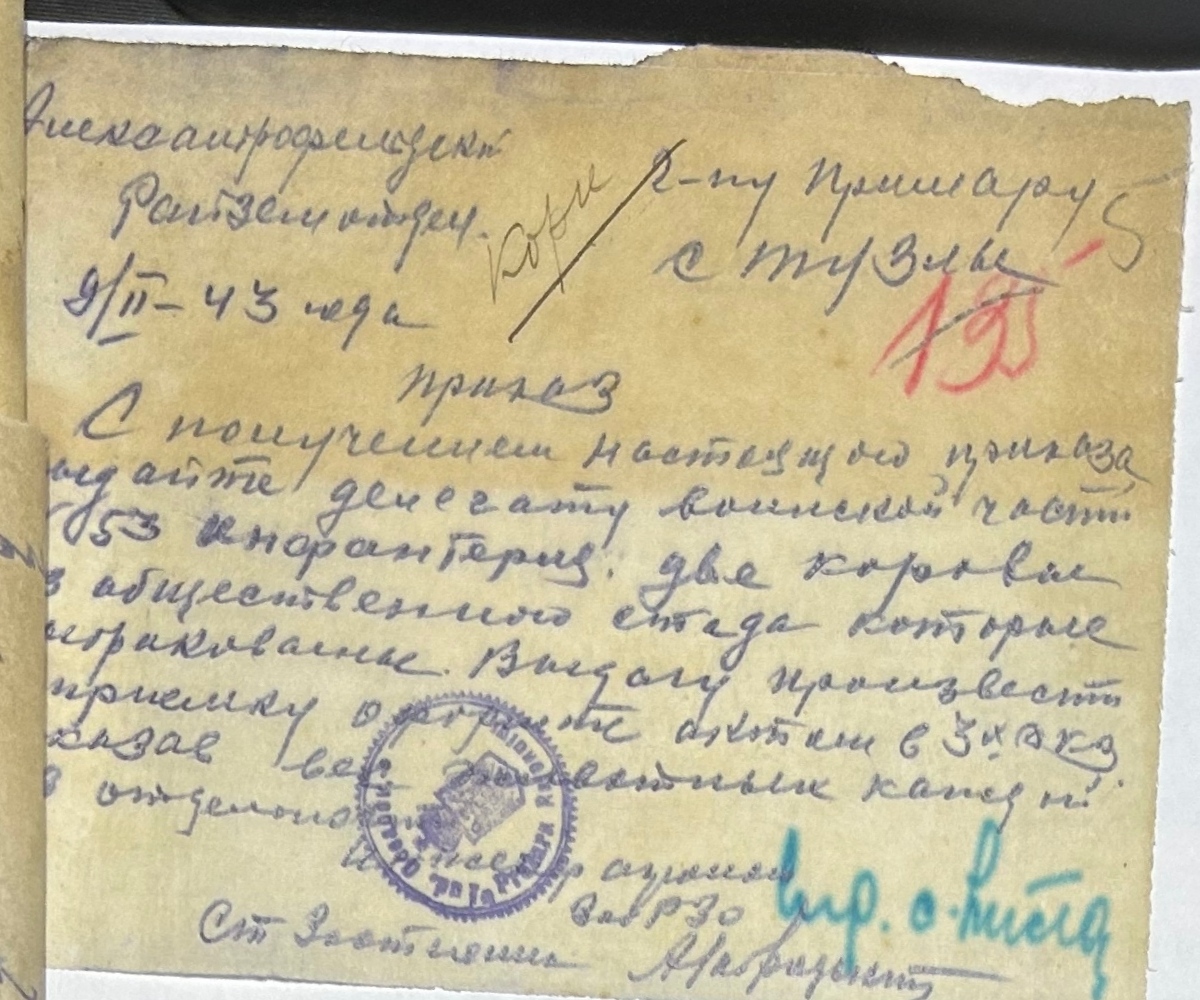 Александрофельдский
Райземотдел.
9/II-43 года
Кори
г-ну Примару
с Тузлы
195
Приказ
С получением настоящего приказа
выдайте делегату воинской части
53 инфантерия. две коровы
з общественного стада которые
выбракованые. Выдачу произвести
приемку оформите актом в 3х экз
казав вес животных каждый
в отдельнос
Инженер агроном
РЗО
Ст Зоотехник